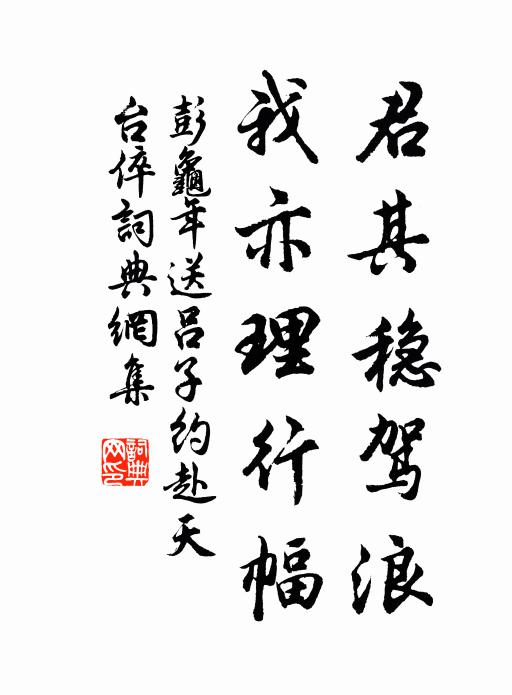 君其稳驾浪
我亦理行幅
彭龜年送呂子约赴天
台倅詞典網集
詞典网印